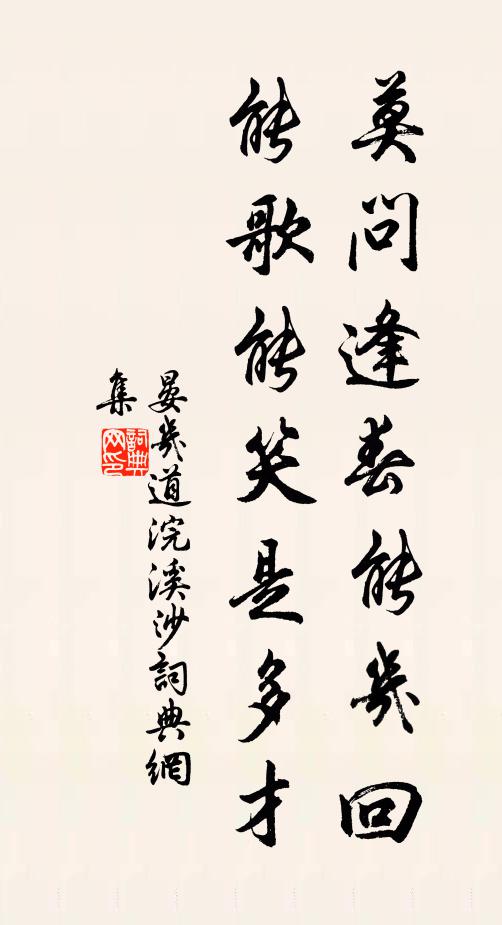 莫問逢春能幾回
能歌能笑是多才
晏幾道浣溪沙詞典網
集
詞典網印